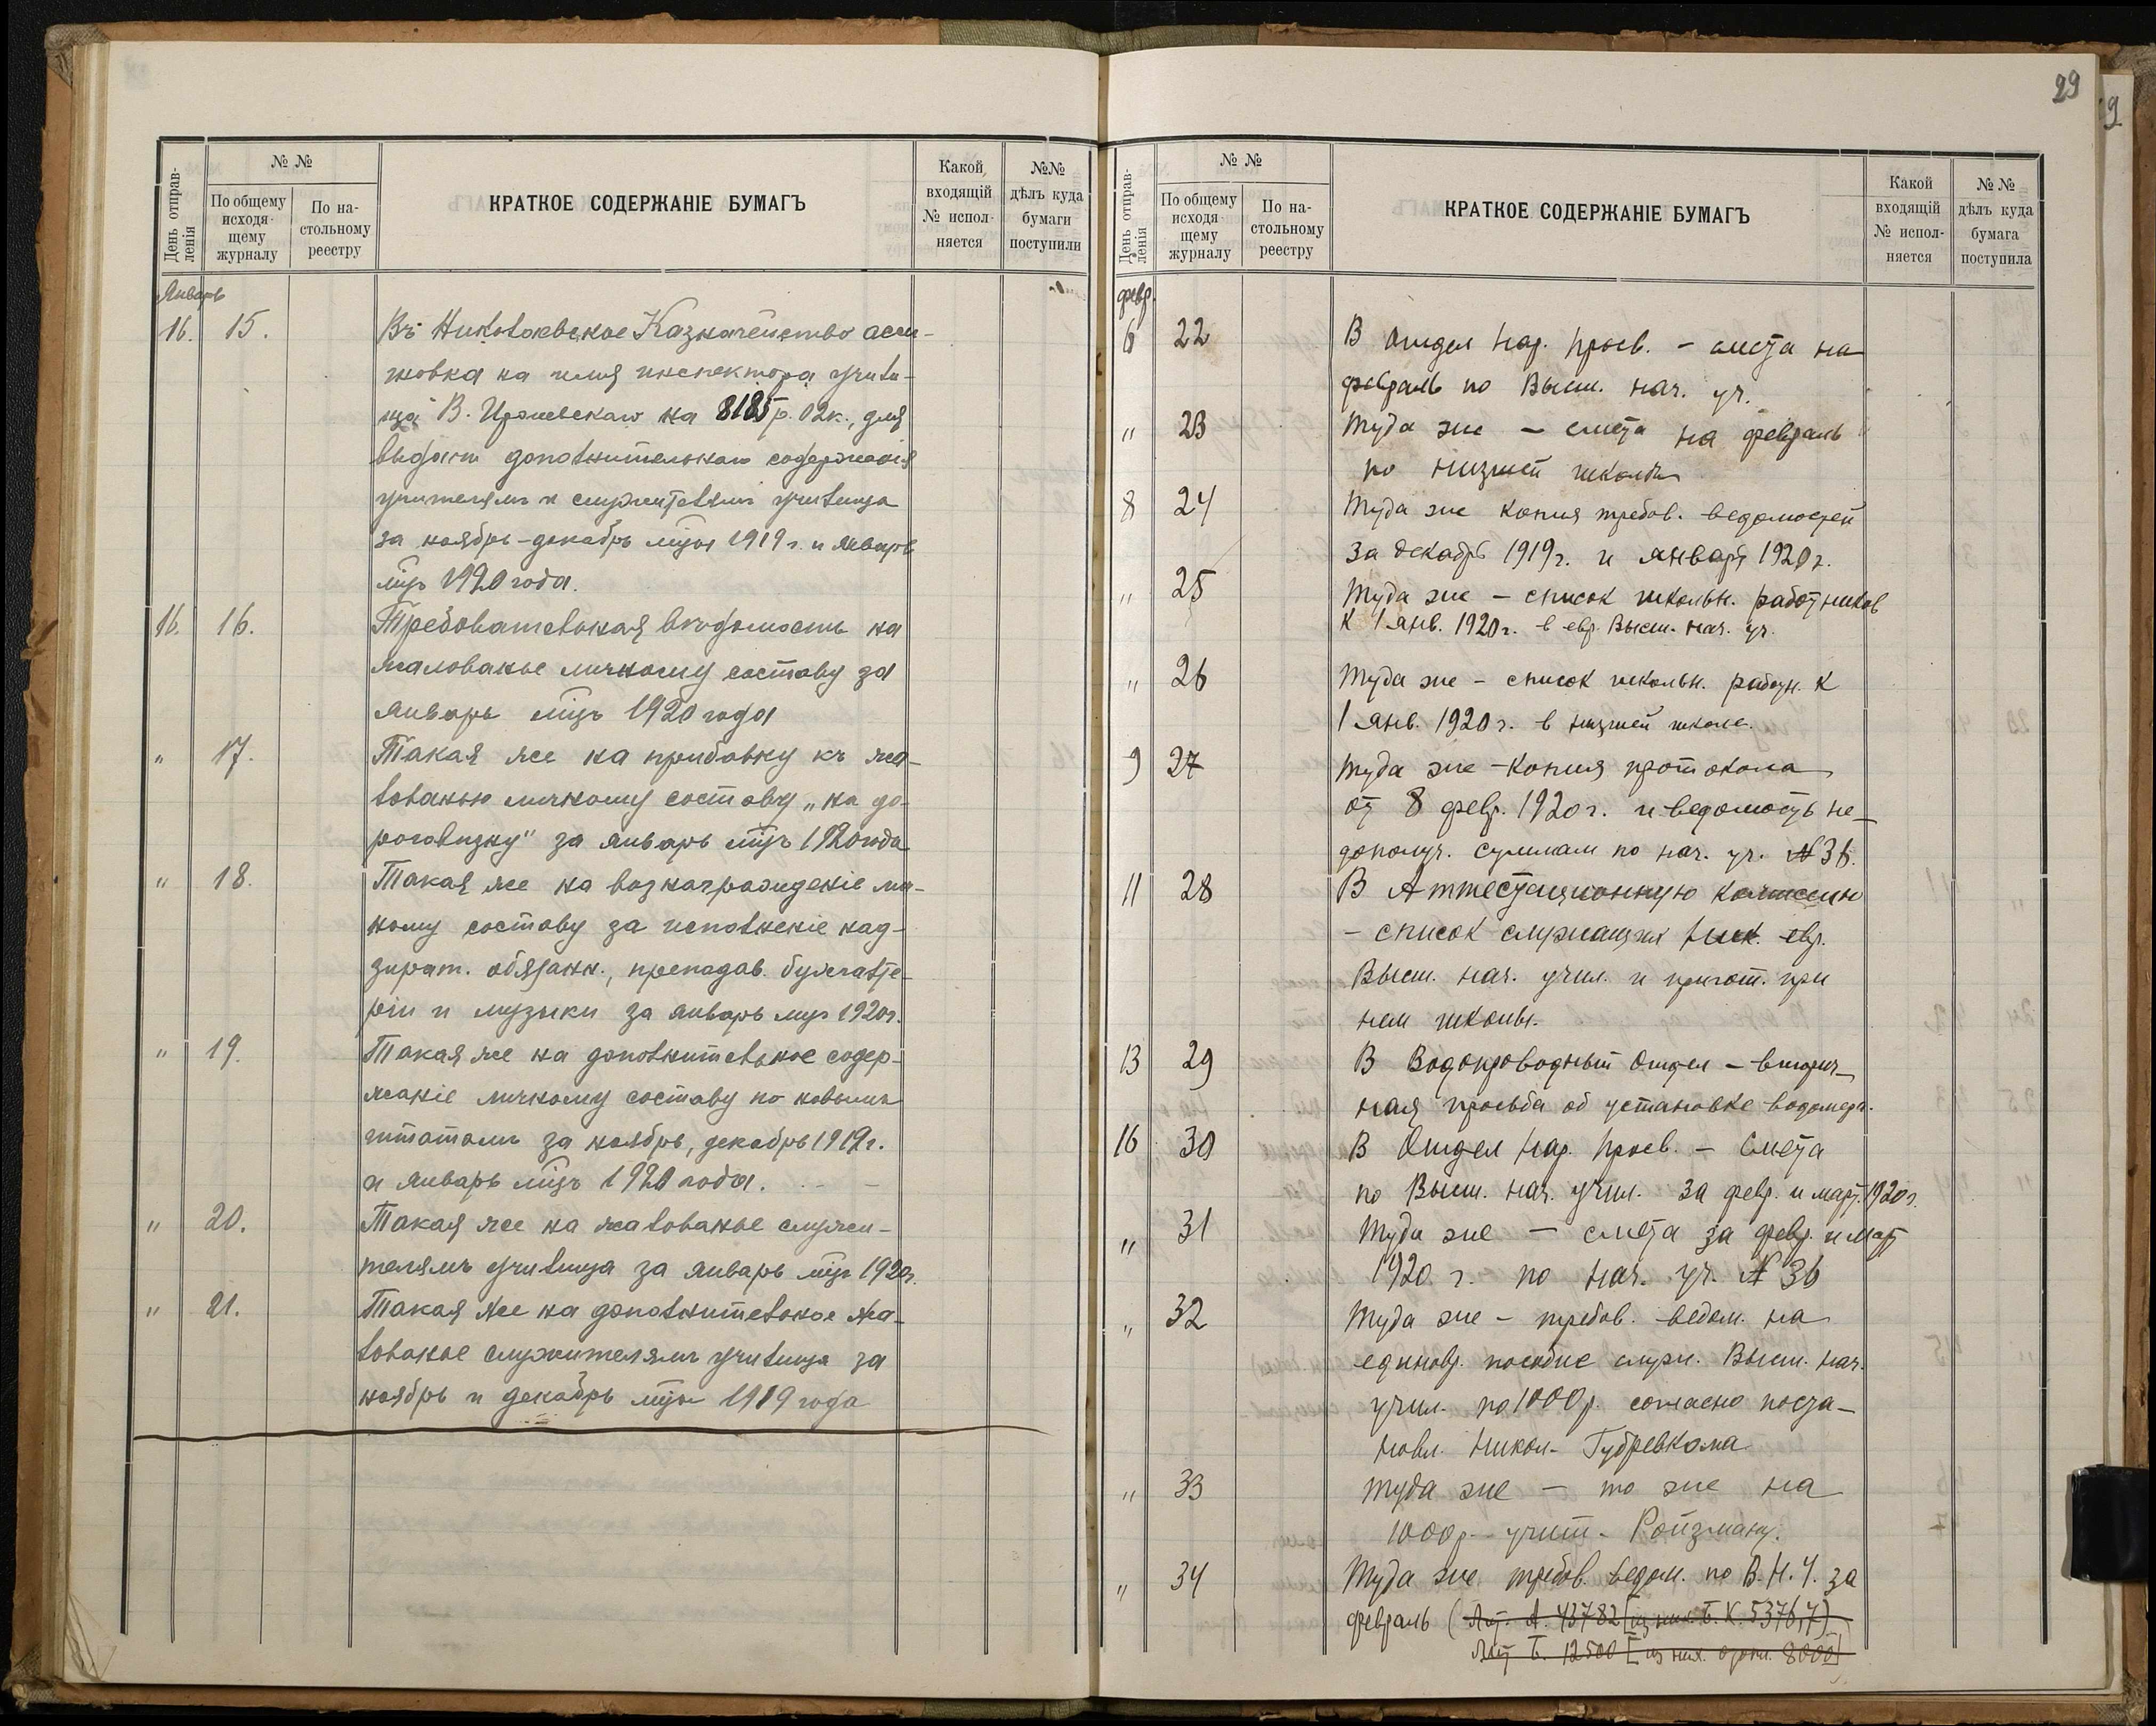 29
9
День отправ-
ленія
№ №
По общему
исходя-
щему
журналу
По на-
стольному
реестру
КРАТКОЕ СОДЕРЖАНІЕ БУМАГЪ
Какой
входящій
№ испол-
няется
№№
дѣлъ куда
бумаги
поступили
Январь
16. 15. Въ Николаевское Казначейство асси-
гновка на имя инспектора учили-
ща В. на 8185 р. 02 к., для
выдачи дополнительнаго содержанія
учителямъ и служителямъ училища
за ноябрь-декабрь мцы 1919 г. и январь
мцъ 1920 года.
16. 16. Требовательная вѣдомость на
жалованье личному составу за
январь мцъ 1920 года
" 17. Такая же на прибавку къ жа-
лованью личному составу „на до-
роговизну" за январь мцъ 1920 года
" 18. Такая же на вознагражденіе лич-
ному составу за исполненіе над-
зират. обязанн., преподав. бухгалте-
ріи и музыки за январь мцъ 1920 г.
" 19. Такая же на дополнительное содер-
жаніе личному составу по новымъ
штатамъ за ноябрь, декабрь 1919 г.
и январь мцъ 1920 года.
" 20. Такая же на жалованье служи-
телямъ училища за январь мцъ 1920 г.
" 21. Такая же на дополнительное жа-
лованье служителямъ училища за
ноябрь и декабрь мцы 1919 года
День отправ-
ленія
№ №
По общему
исходя-
щему
журналу
По на-
стольному
реестру
КРАТКОЕ СОДЕРЖАНІЕ БУМАГЪ
Какой
входящій
№ испол-
няется
№ №
дѣлъ куда
бумага
поступила
февр.
6 22 В Отдел Нар. Просв. – смета на
февраль по Высш. нач. уч.
" 23 Туда же – смета на февраль
по низшей школе
8 24 Туда же копия требов. ведомостей
за декабрь 1919 г. и январь 1920 г.
" 25 Туда же – список школьн. работников
к 1 янв. 1920 г. в евр. Высш. нач. уч.
" 26 Туда же – список школьн. работн. к
1 янв. 1920 г. в низшей школе.
9 27 Туда же – копия протокола
от 8 февр. 1920 г. и ведомость не-
дополуч. суммам по нач. уч. № 36.
11 28 В Аттестационную комиссию
– список служащих Ник. евр.
Высш. нач. учил. и пригот. при
нем школы.
13 29 В Водопроводный Отдел – вторич-
ная просьба об установке водомера.
16 30 В Отдел Нар. Просв. – Смета
по Высш. нач. учил. за февр. и март. 1920 г.
" 31 Туда же – смета за февр. и март
1920 г. по нач. уч. № 36
" 32 Туда же – требов. ведом. на
единовр. пособие служ. Высш. нач.
учил. по 1000 р. согласно поста-
новл. Никол. Губревкома
" 33 Туда же – то же на
1000 р. учит. Ройзману.
" 34 Туда же требов. ведом. по В. Н. У. за
февраль (Лит. А. 43782 [из них Б. К. 5376,7)
Лит Б. 12500 [из них 8000]